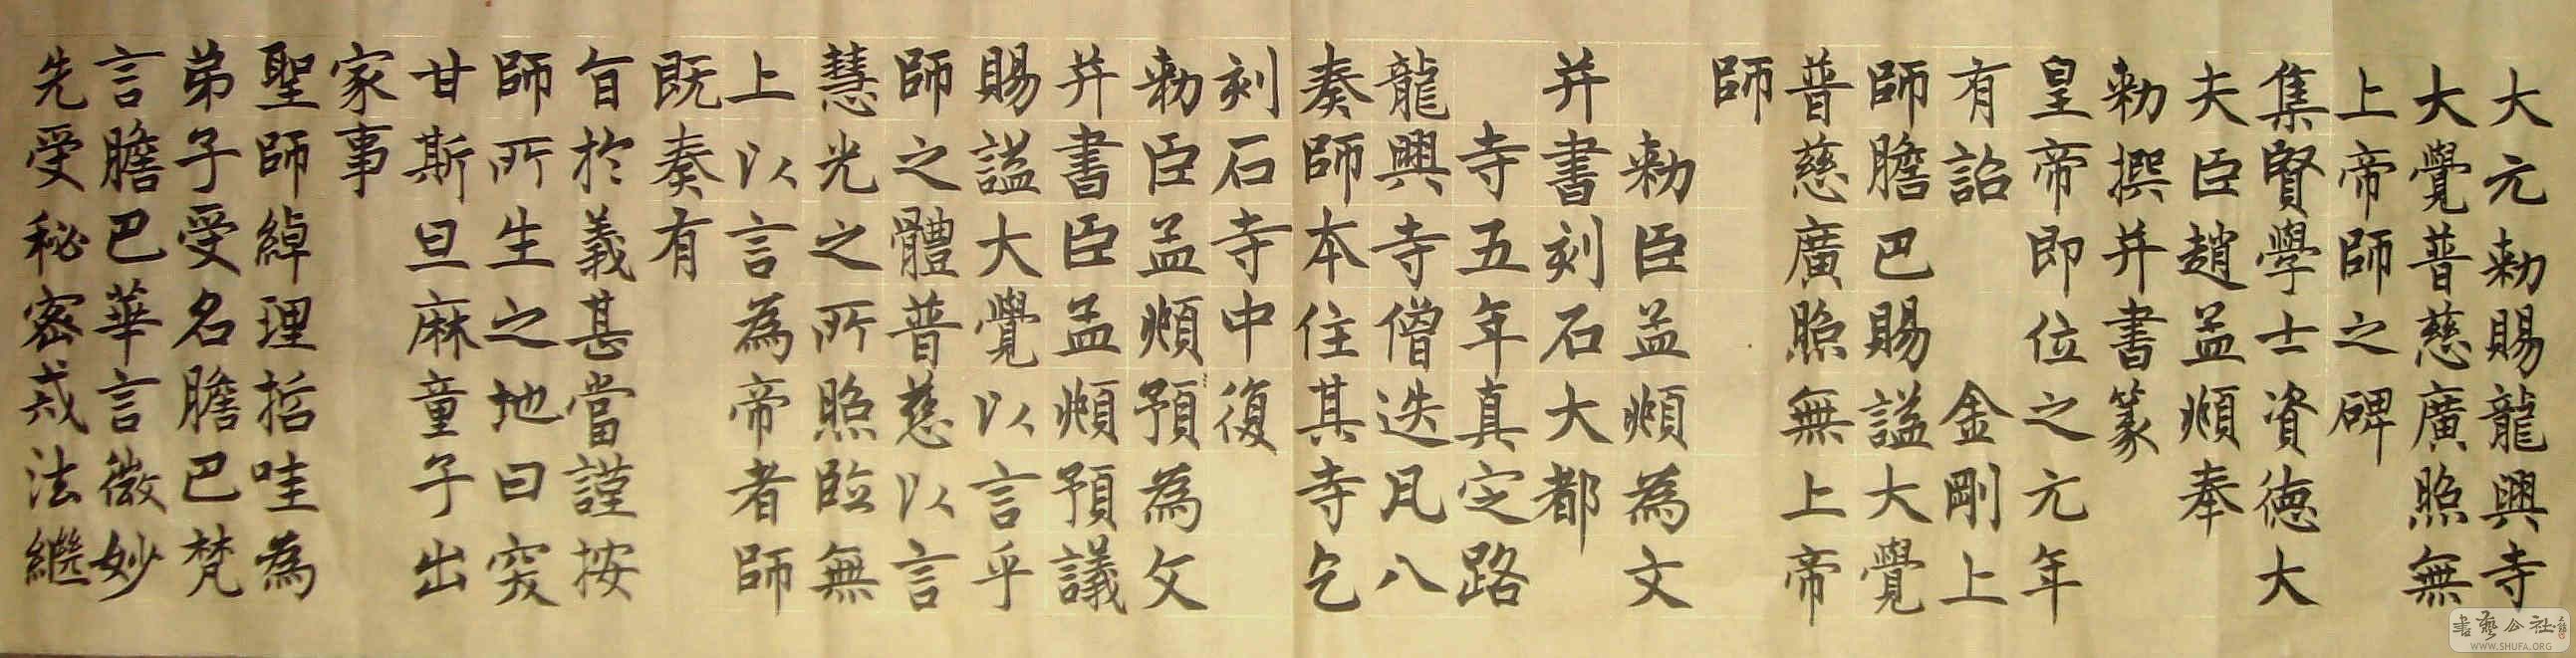 大元勅賜龍興寺
大覺普慈廣照無
上帝師之碑
集賢學士資德大
夫臣趙孟頫奉
勅撰并書篆
皇帝即位之元年
有詔金剛上
師膽巴賜謚大覺
普慈廣照無上帝
師
勅臣孟頫為文
并書刻石大都
寺五年真定路
龍興寺僧迭凡八
奏師本住其寺乞
刻石寺中復
勅臣孟頫預為文
并書臣孟頫預議
賜謚大覺以言乎
師之體普慈以言
慧光之所照臨無
上以言為帝者師
既奏有
旨於義甚當謹按
師所生之地曰突
甘斯旦麻童子出
家事
聖師綽理哲哇為
弟子受名膽巴梵
言膽巴華言微妙
先受秘密戒法繼
書藝公社
WWW.SHUFA.ORG